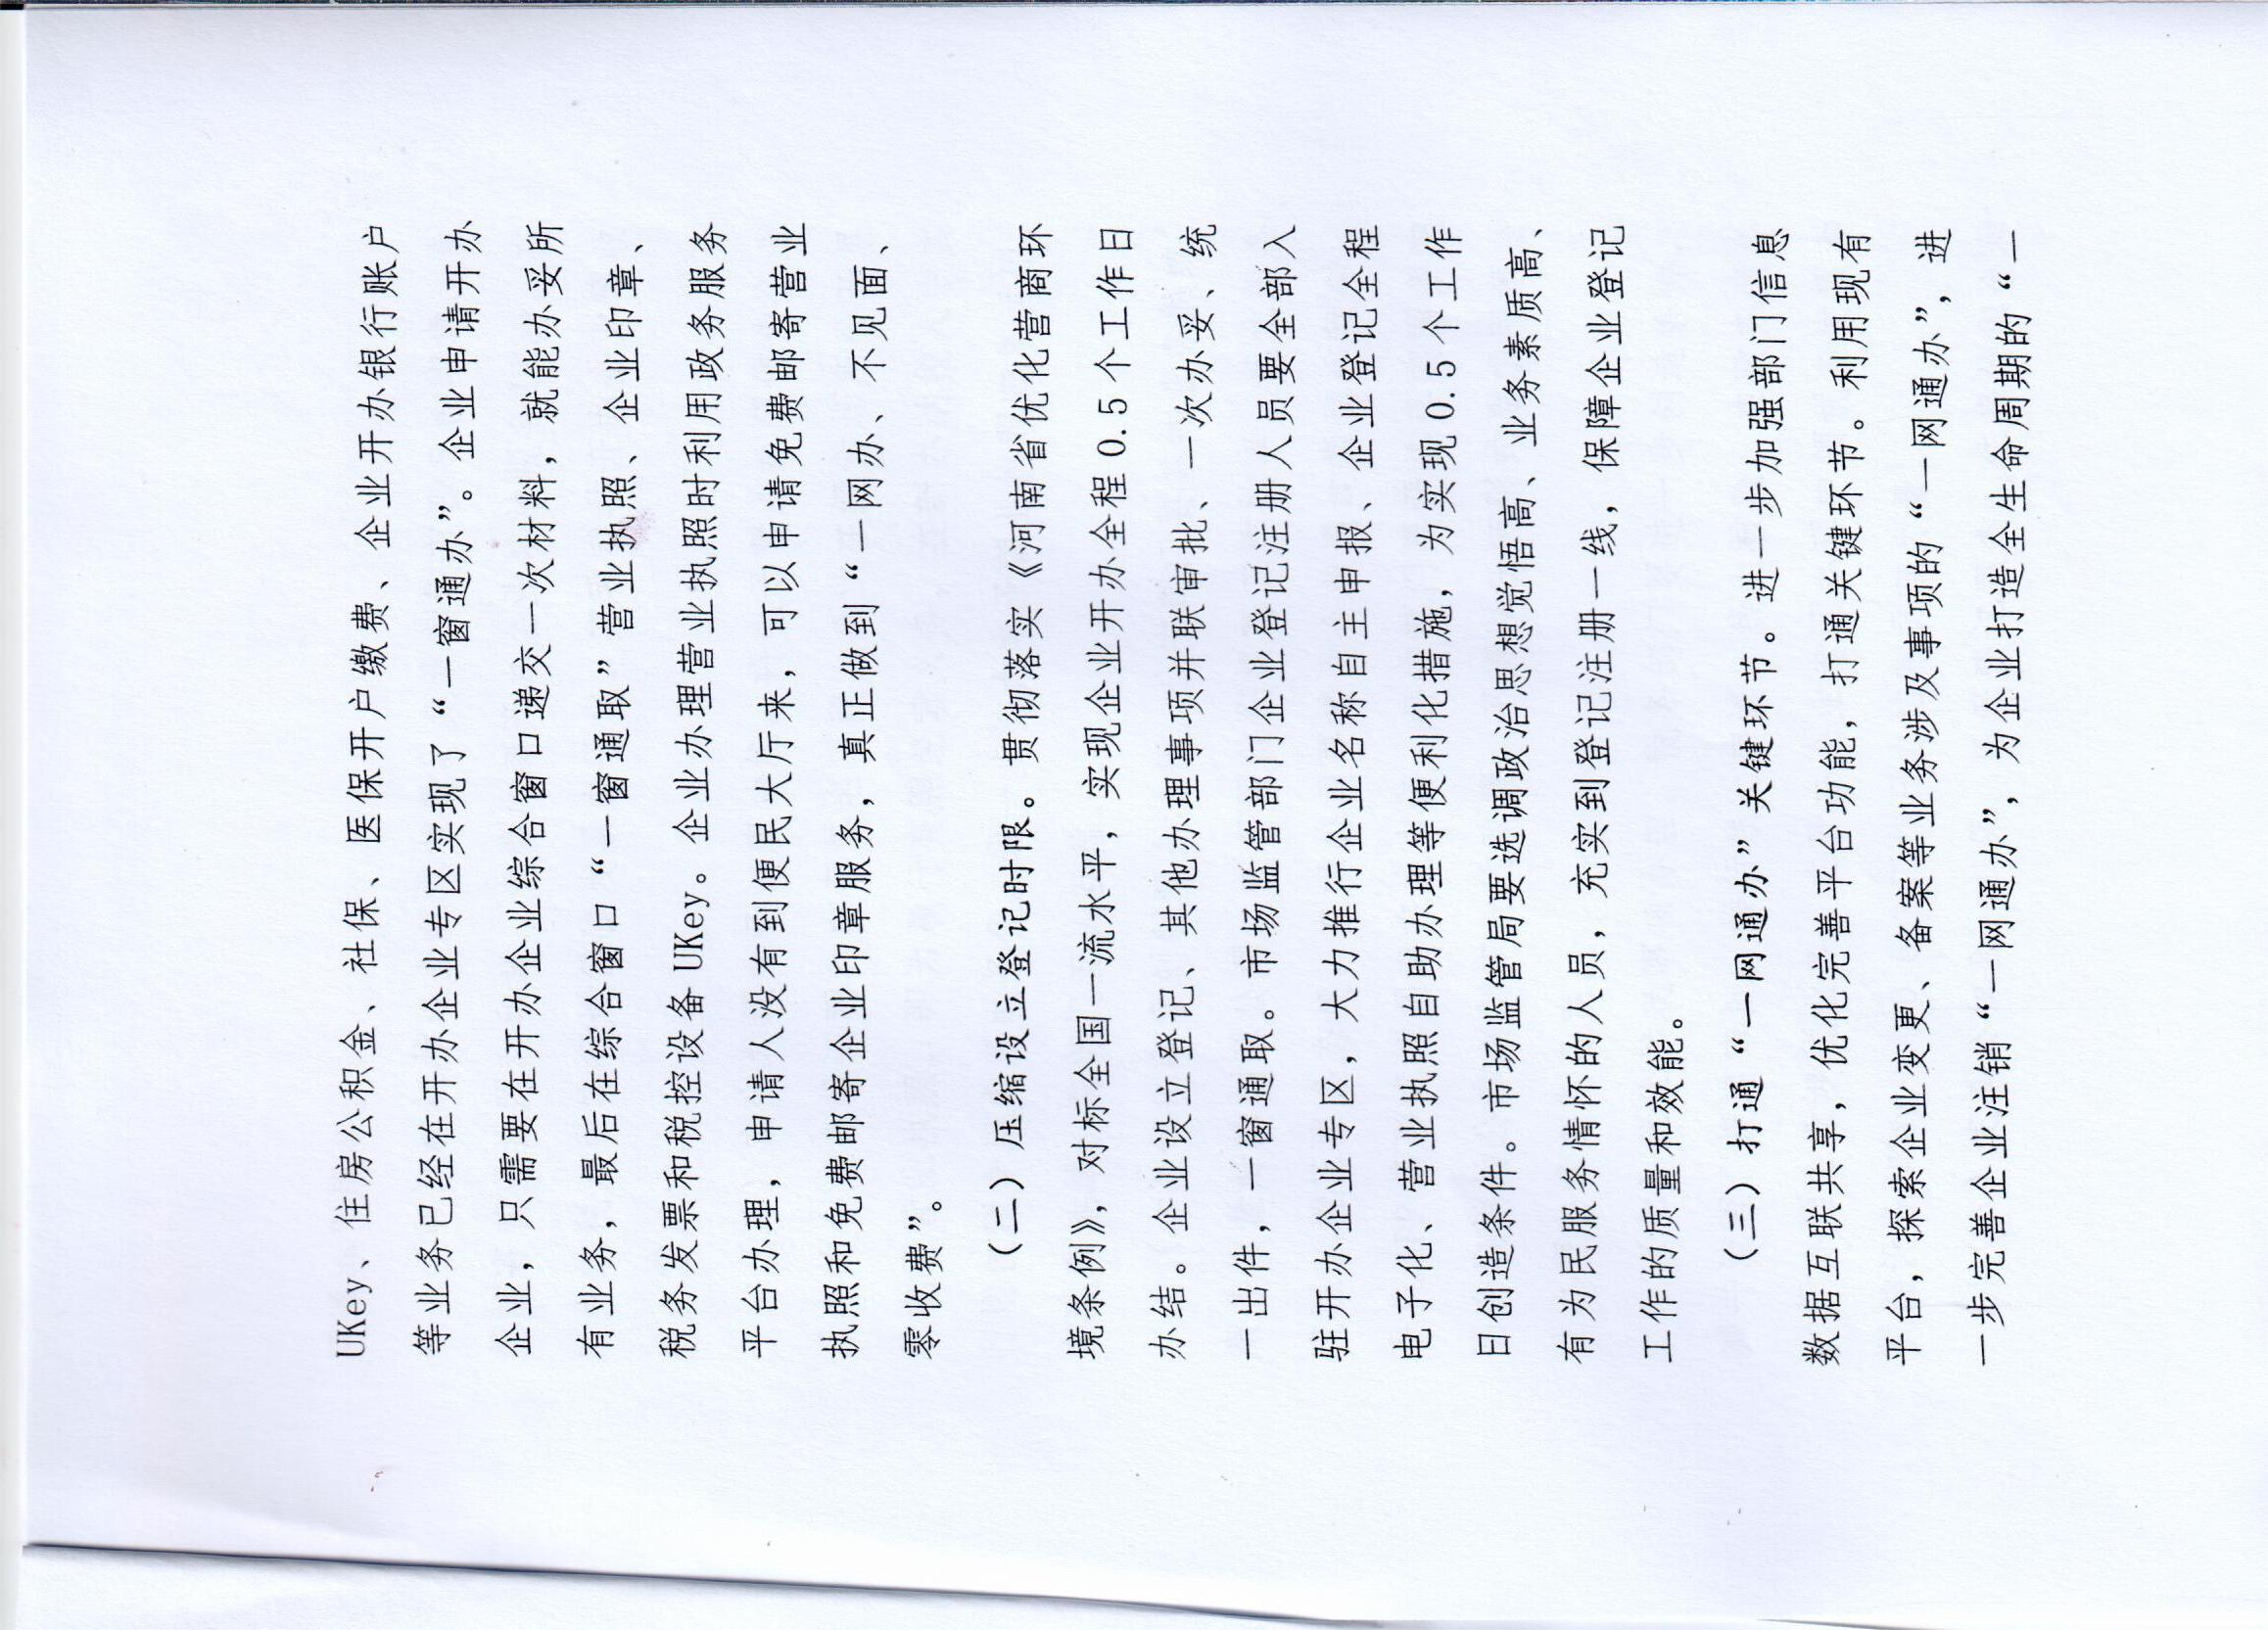 UKey、住房公积金、社保、医保开户缴费、企业开办银行账户
等业务已经在开办企业专区实现了“一窗通办”。企业申请开办
企业，只需要在开办企业综合窗口递交一次材料，就能办妥所
有业务，最后在综合窗口“一窗通取”营业执照、企业印章、
税务发票和税控设备 UKey。企业办理营业执照时利用政务服务
平台办理，申请人没有到便民大厅来，可以申请免费邮寄营业
执照和免费邮寄企业印章服务，真正做到“一网办、不见面、
零收费”。
（二）压缩设立登记时限。贯彻落实《河南省优化营商环
境条例》，对标全国一流水平，实现企业开办全程 0.5 个工作日
办结。企业设立登记、其他办理事项并联审批、一次办妥、统
一出件，一窗通取。市场监管部门企业登记注册人员要全部入
驻开办企业专区，大力推行企业名称自主申报、企业登记全程
电子化、营业执照自助办理等便利化措施，为实现 0.5 个工作
日创造条件。市场监管局要选调政治思想觉悟高、业务素质高、
有为民服务情怀的人员，充实到登记注册一线，保障企业登记
工作的质量和效能。
（三）打通“一网通办”关键环节。进一步加强部门信息
数据互联共享，优化完善平台功能，打通关键环节。利用现有
平台，探索企业变更、备案等业务涉及事项的“一网通办”，进
一步完善企业注销“一网通办”，为企业打造全生命周期的“一